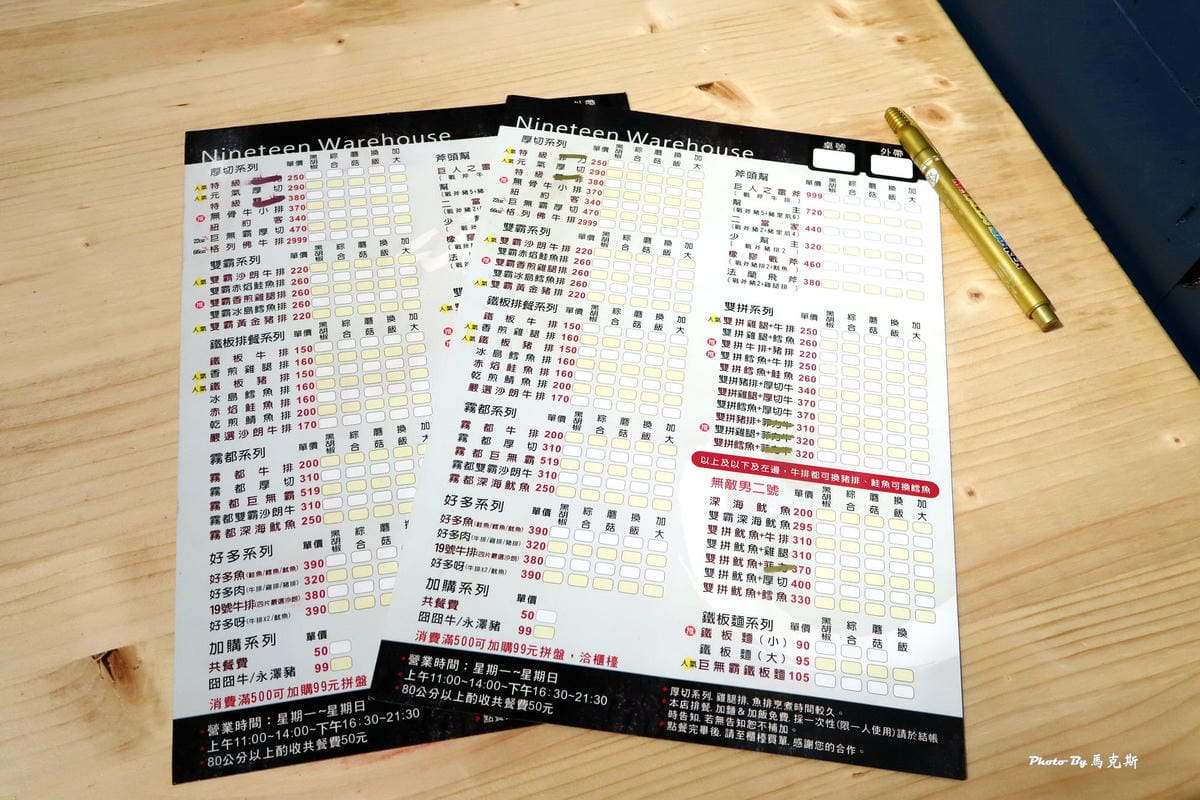 Nineteen Warehouse
厚切系列 單價 黑胡椒 綜合 磨菇 換飯 加大
人氣 特級 250
人氣 元氣厚切 290
特級 380
推 無骨牛小排 370
紐約客 340
22oz 巨無霸厚切 470
66oz 格列佛牛排 2999
雙霸系列 單價 黑胡椒 綜合 磨菇 換飯 加大
人氣 雙霸沙朗牛排 220
雙霸赤焰鮭魚排 260
推 雙霸香煎雞腿排 260
雙霸冰島鱈魚排 260
人氣 雙霸黃金豬排 220
鐵板排餐系列 單價 黑胡椒 綜合 磨菇 換飯 加大
鐵板牛排 150
人氣 香煎雞腿排 160
人氣 鐵板豬排 150
冰島鱈魚排 160
赤焰鮭魚排 160
乾煎鯖魚排 200
嚴選沙朗牛排 170
霧都系列 單價 黑胡椒 綜合 磨菇 換飯 加大
霧都牛排 200
霧都厚切 310
霧都巨無霸 519
霧都雙霸沙朗牛 310
霧都深海魷魚 250
好多系列 單價 黑胡椒
好多魚(鮭魚/鱈魚/魷魚) 390
好多肉(牛排/雞排/豬排) 320
19號牛排(四片嚴選沙朗) 380
好多呀(牛排X2/魷魚) 390
加購系列 單價
共餐費 50
囧囧牛/永澤豬 99
消費滿500可加購99元拼盤
營業時間：星期一~星期日
上午11:00~14:00~下午16:30~21:30
80公分以上酌收共餐費50元
外帶
斧頭幫
巨人之雷
Nineteen Warehouse
桌號 外帶
厚切系列 單價 黑胡椒 綜合 磨菇 換飯 加大
人氣 特級 250
人氣 元氣厚切 290
特級 380
推 無骨牛小排 370
紐約客 340
22oz 巨無霸厚切 470
66oz 格列佛牛排 2999
雙霸系列 單價 黑胡椒 綜合 磨菇 換飯 加大
人氣 雙霸沙朗牛排 220
雙霸赤焰鮭魚排 260
推 雙霸香煎雞腿排 260
雙霸冰島鱈魚排 260
人氣 雙霸黃金豬排 220
鐵板排餐系列 單價 黑胡椒 綜合 磨菇 換飯 加大
鐵板牛排 150
人氣 香煎雞腿排 160
人氣 鐵板豬排 150
冰島鱈魚排 160
赤焰鮭魚排 160
乾煎鯖魚排 200
嚴選沙朗牛排 170
霧都系列 單價 黑胡椒 綜合 磨菇 換飯 加大
霧都牛排 200
霧都厚切 310
霧都巨無霸 519
霧都雙霸沙朗牛 310
霧都深海魷魚 250
好多系列 單價 黑胡椒 綜合 磨菇 換飯 加大
好多魚(鮭魚/鱈魚/魷魚) 390
好多肉(牛排/雞排/豬排) 320
19號牛排(四片嚴選沙朗) 380
好多呀(牛排X2/魷魚) 390
加購系列 單價
共餐費 50
囧囧牛/永澤豬 99
消費滿500可加購99元拼盤，洽櫃檯
斧頭幫 單價 黑胡椒 綜合 磨菇 換飯 加大
巨人之雷斧 999
(戰斧牛排)
幫主 720
(戰斧豬5+豬里肌6)
二當家 440
(戰斧豬2+豬里肌4)
少幫主 320
(戰斧豬排2)
橡膠戰斧 460
(戰斧豬排2+魷魚)
法蘭飛斧 380
(戰斧豬2+雞腿排)
雙拼系列 單價 黑胡椒 綜合 磨菇 換飯 加大
人氣 雙拼雞腿+牛排 250
雙拼雞腿+鱈魚 260
推 雙拼牛排+豬排 220
推 雙拼鱈魚+牛排 250
雙拼鱈魚+鮭魚 260
雙拼豬排+厚切牛 340
雙拼雞腿+厚切牛 370
雙拼鱈魚+厚切牛 370
雙拼豬排+ 310
推 雙拼雞腿+ 320
雙拼鱈魚+ 320
以上及以下及左邊，牛排都可換豬排、鮭魚可換鱈魚
無敵男二號 單價 黑胡椒 綜合 磨菇 換飯 加大
深海魷魚 200
雙霸深海魷魚 295
雙拼魷魚+牛排 310
雙拼魷魚+雞腿 310
雙拼魷魚+ 370
雙拼魷魚+厚切 400
雙拼魷魚+鱈魚 330
鐵板麵系列 單價 黑胡椒 綜合 磨菇 換飯
推 鐵板麵(小) 90
鐵板麵(大) 95
人氣 巨無霸鐵板麵 105
營業時間：星期一~星期日
上午11:00~14:00~下午16:30~21:30
80公分以上酌收共餐費50元
厚切系列, 雞腿排, 魚排烹煮時間較久。
本店排餐, 加麵&加飯免費, 採一次性(限一人使用)請於結帳
時告知, 若無告知恕不補加。
點餐完畢後, 請至櫃檯買單, 感謝您的合作。
Photo By 馬克斯